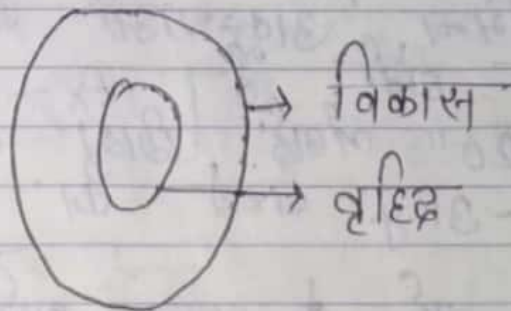 विकास
वृद्धि